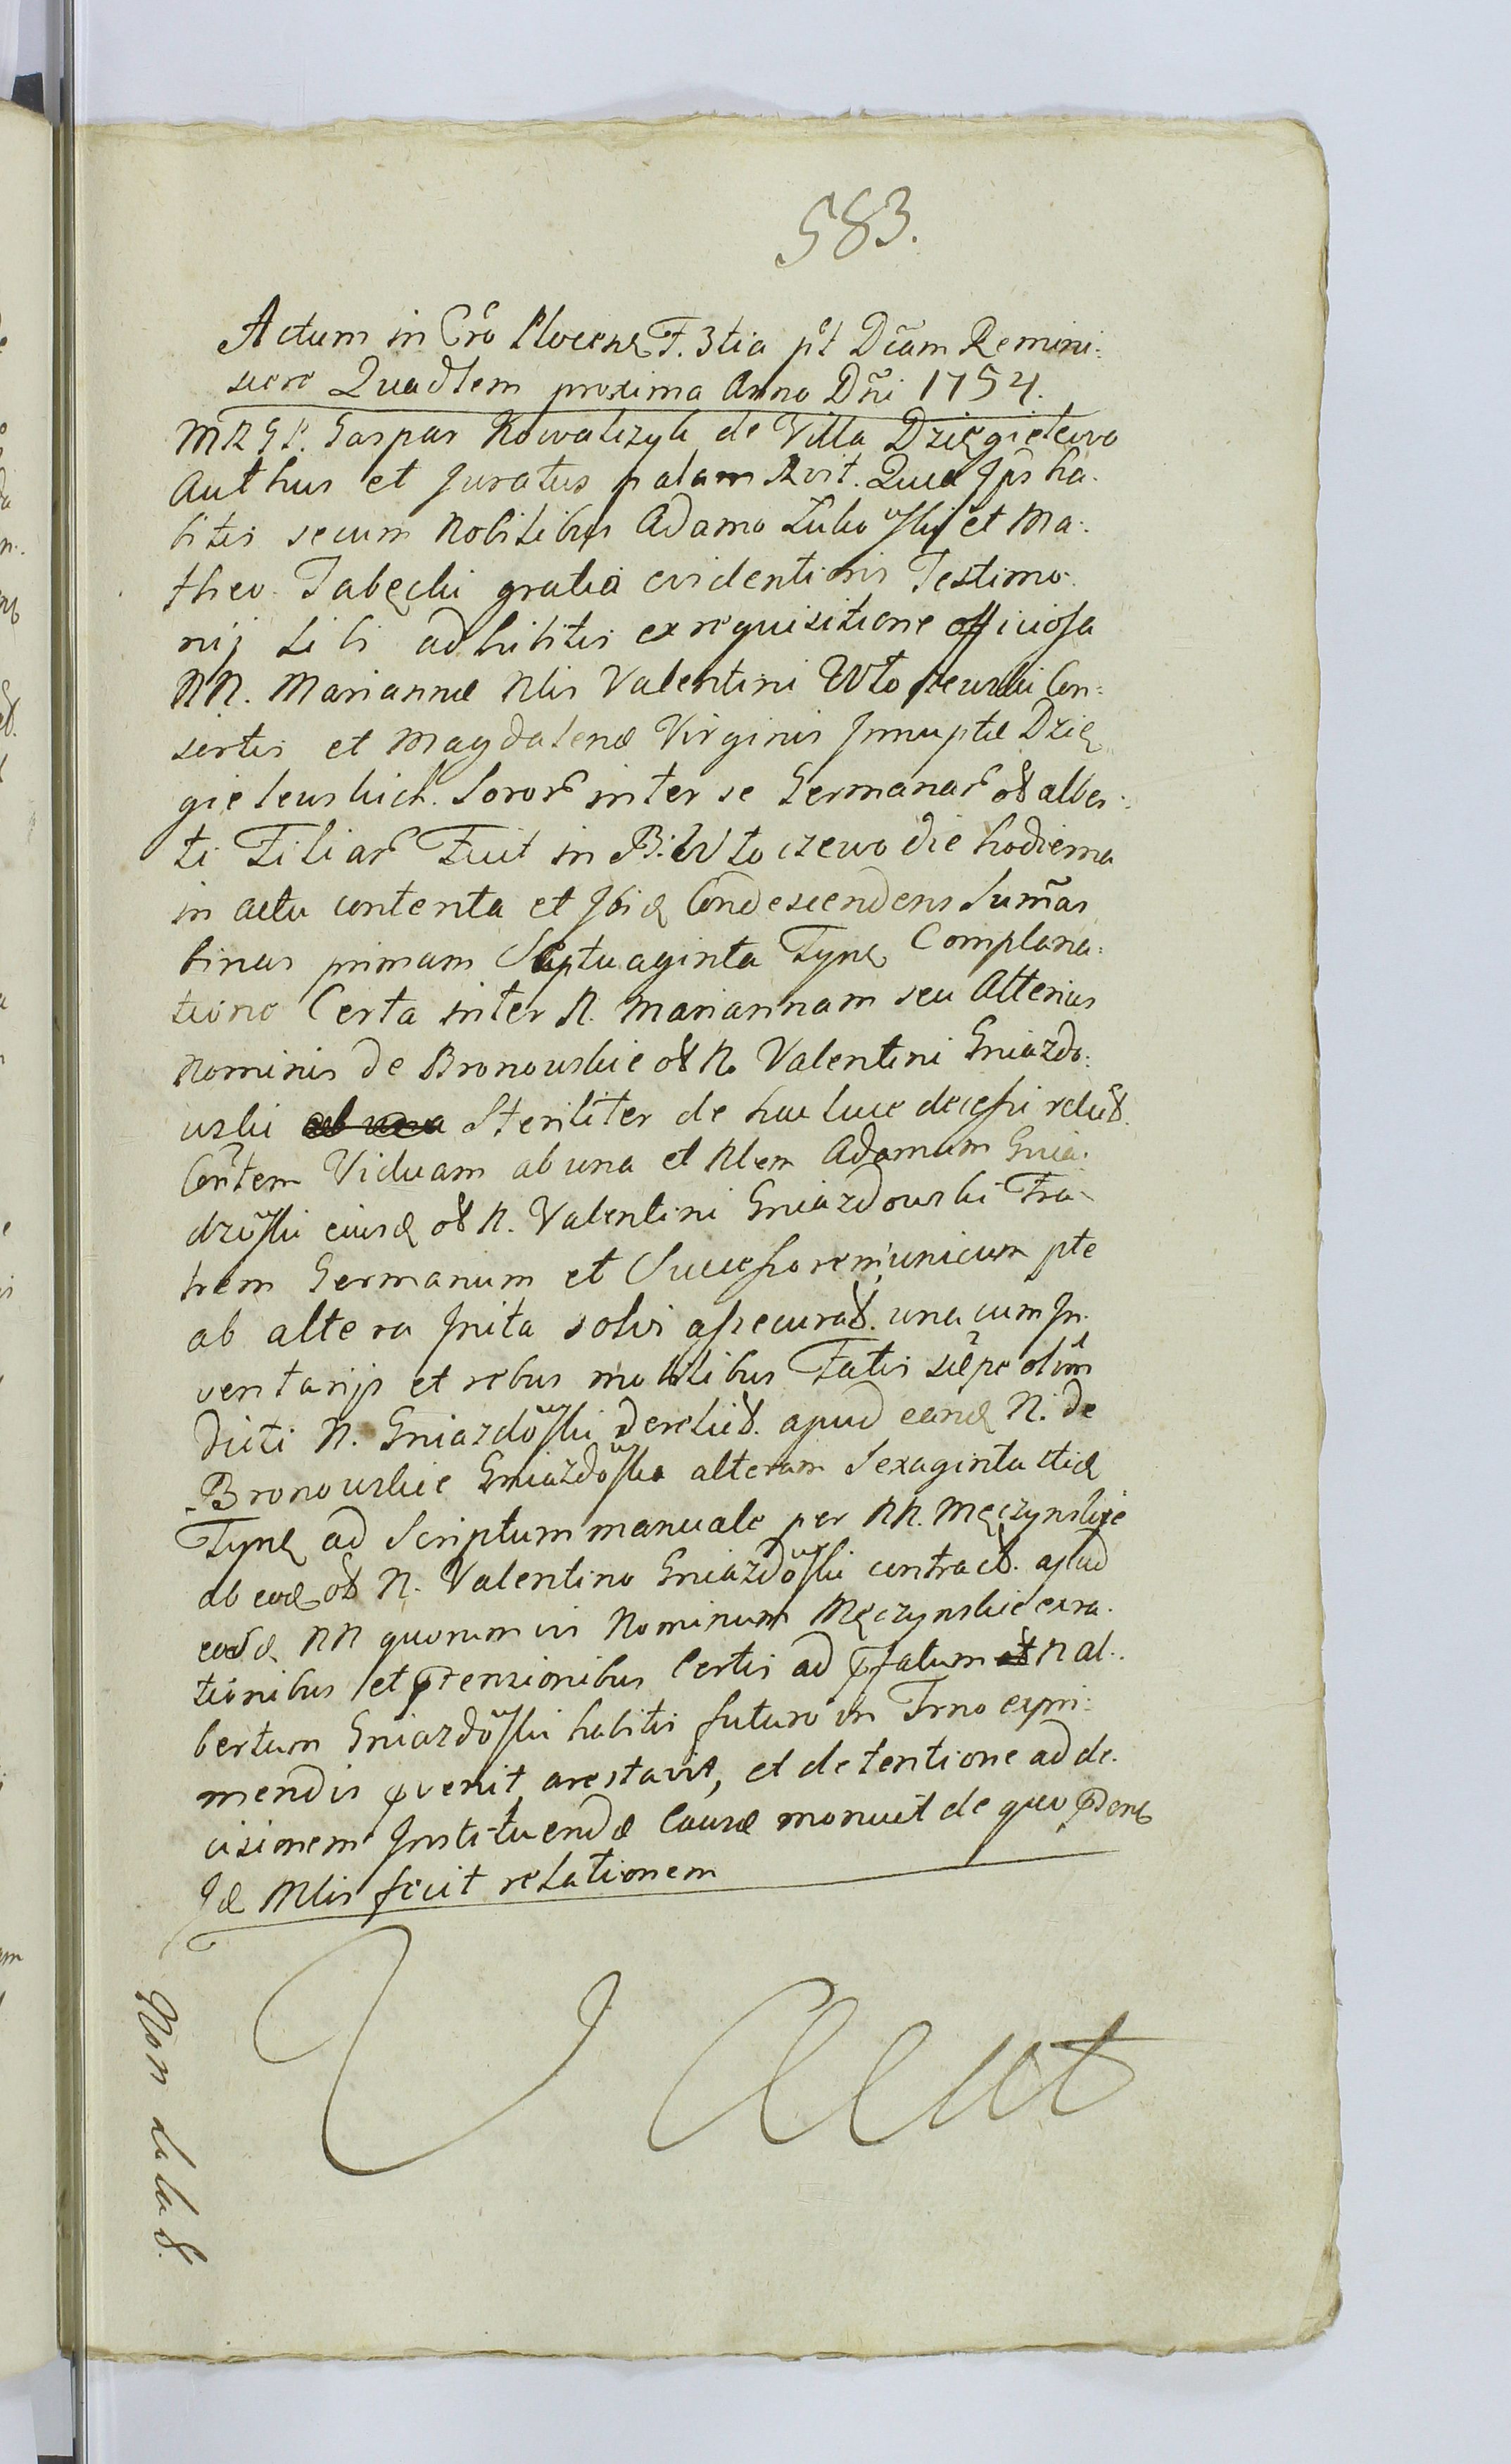 583.
Actum in Cro Plocen. F. 3tia pt Dcam Remini:
scere Quadlem proxima Anno Dni 1754.
MRGP. Gaspar Kowalczyk de Villa Dzięgielewo
Authus et Juratus palam Rvit. Quia Ips ha.
bitis secum Nobilibus Adamo Zulio wski et Ma:
theo Jabęcki gratia evidentioris Testimo.
nij sibi adhibitis ex requisitione officiosa
NN. Mariannæ Nlis Valentini Wto czewski Con:
sortis et Magdalenæ Virginis Innuptæ Dzię
gielewskich. Soror inter se Germanar ol Alber:
ti Filiar Fuit in B: Wto czewo die hodierna
in actu contenta et Ibi Condescendens Sumas
binas primam Septuaginta Tyn Complana:
tiono Certa inter N. Mariannam seu Alterius
Nominis de Bronowskie ol N. Valentini Gniazdo:
wski Steriliter de hac luce decessi relict.
Contem Viduam ab una et Nlem Adamum Gnia.
dzowski eiusd ol N. Valentini Gniazdowski Fra
trem Germanum et Successorem unicum pte
ab altera Inita solvi assecurat. una cum In.
ventarijs et rebus mobilibus Fatis sæpe olim
dicti N. Gniazdowski derelict. apud eand N. de
Bronowskie Gniazdowska alteram Sexaginta itid
Tyn ad Scriptum manuale per NN. Męczynskie
ab eod ol N. Valentino Gniazdowski contract. apud
eosd NN quorumvis Nominum Męczynskie ex ra.
tionibus et ptensionibus Certis ad pfatum N Al.
bertum Gniazdowski habitis futuro in Trno expri:
mendis pvenit, arestavit, et detentione ad de.
cisionem Instituendæ Causæ monuit de quo pdens
Id Mlis fecit relationem
Vacat
Non